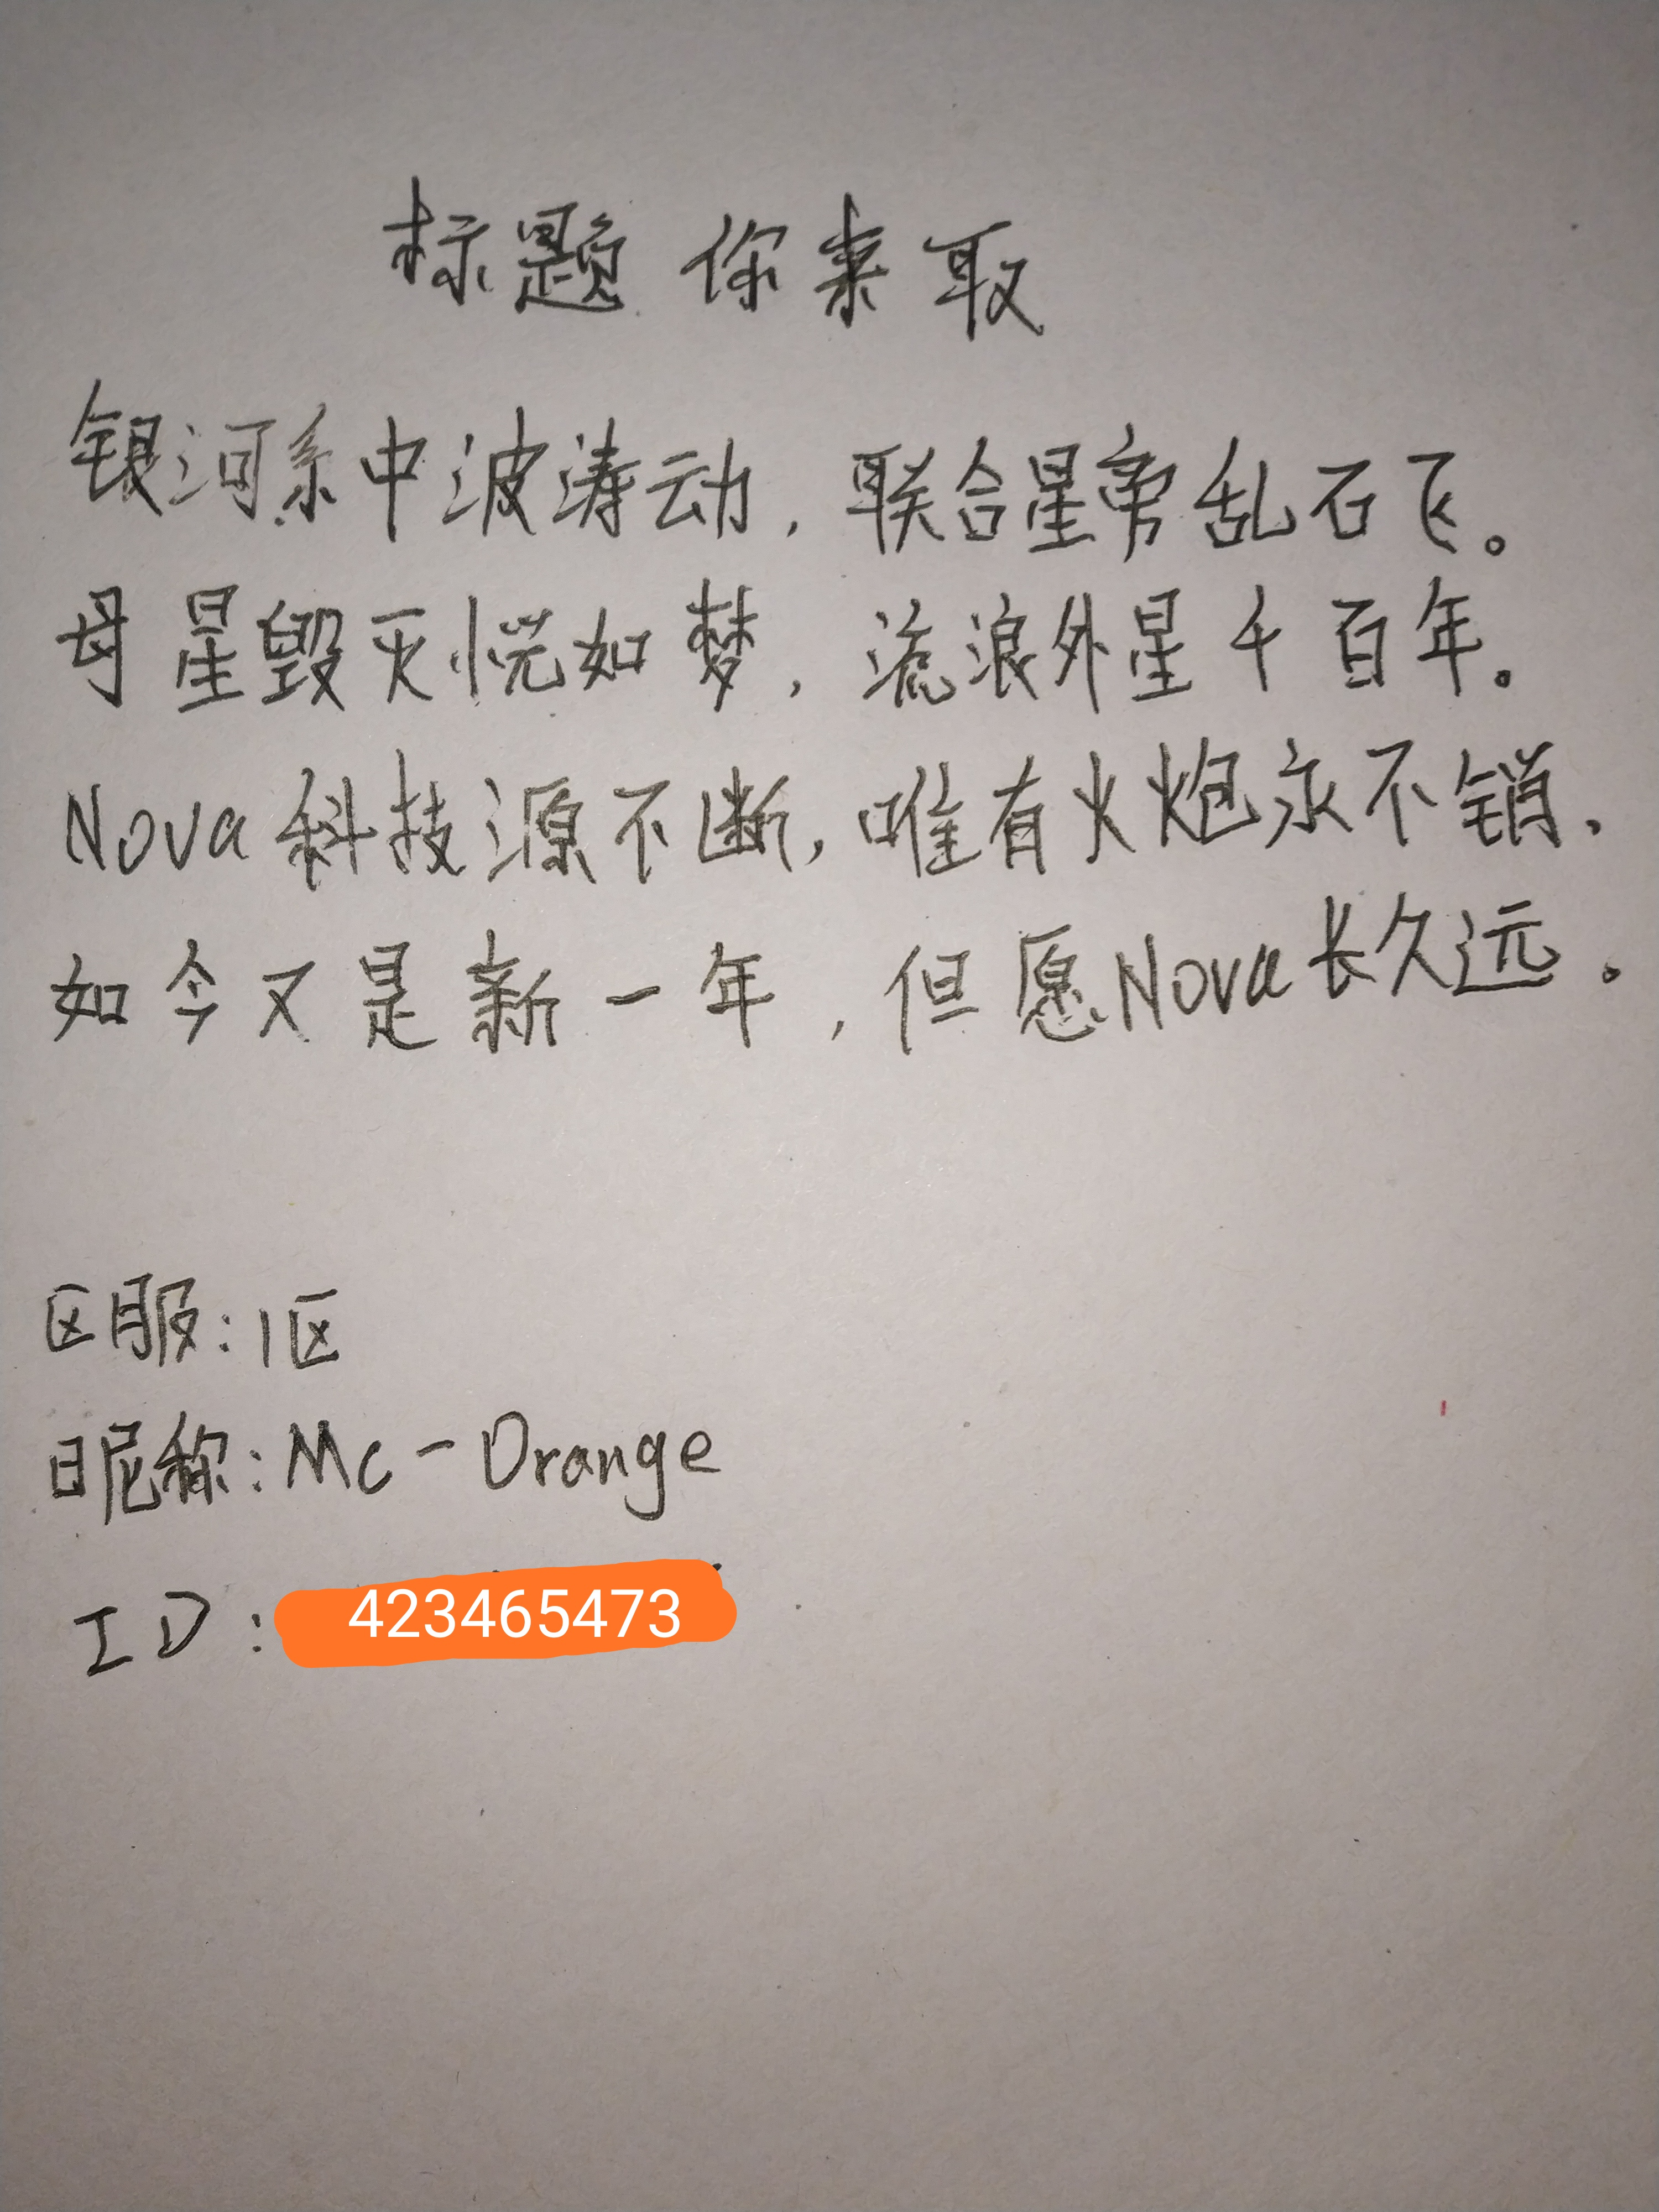 标题你来取
银河系中波涛动，联合星常乱石飞。
母星毁灭恍如梦，流浪外星千百年。
Nova科技源不断，唯有火炮永不销.
如今又是新一年，但愿Nova长久远。
区服：1区
昵称：Mc-Orange
ID：423465473